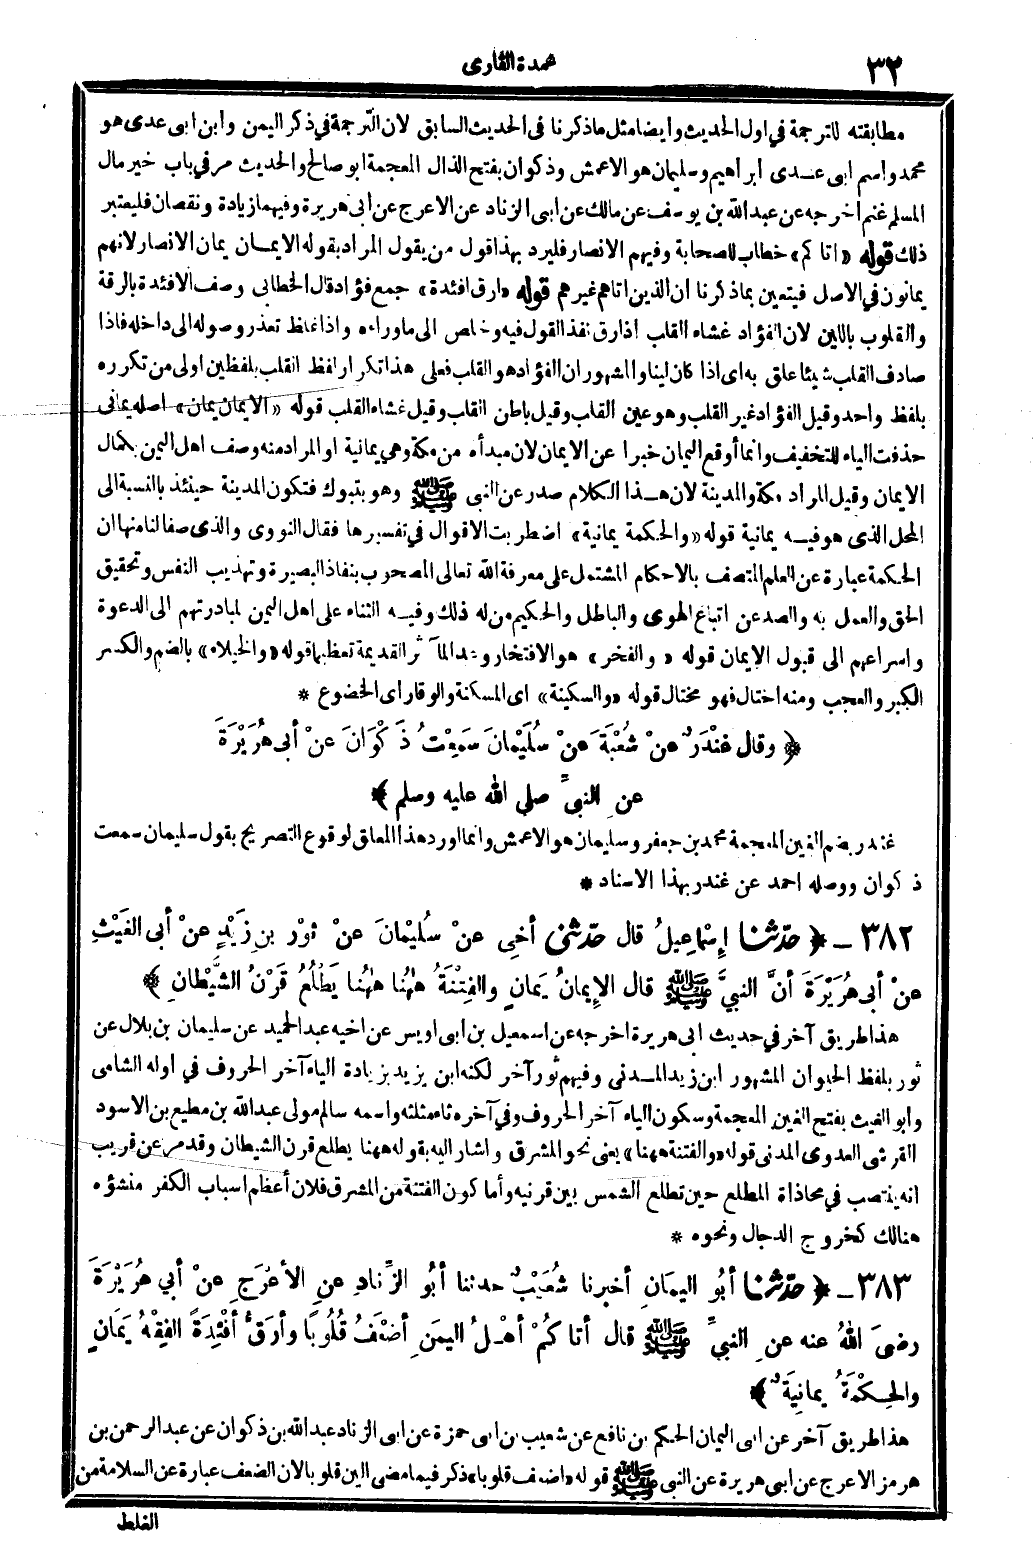 ٣٢
عمدة القارى
مطابقته للترجمة في اول الحديث وايضا مثل ما ذكرنا فى الحديث السابق لان الترجمة في ذكر اليمن وابن ابى عدى هو
محمد واسم ابى عدى ابراهيم وسليمان هو الاعمش وذكوان بفتح الذال المعجمة ابو صالح والحديث مر في باب خير مال
المسلم غنم اخرجه عن عبد الله بن يوسف عن مالك عن ابى الزناد عن الاعرج عن ابى هريرة وفيهما زيادة ونقصان فليعتبر
ذلك قوله «اتاكم» خطاب للصحابة وفيهم الانصار فليرد بهذا قول من يقول المراد بقوله الايمان يمان الانصار لانهم
يمانون في الاصل فيتعين بما ذكرنا ان الذين اتاهم غيرهم قوله «ارق افئدة» جمع فؤاد قال الخطابى وصف الافئدة بالرقة
والقلوب باللين لان الفؤاد غشاء القلب اذا رق نفذ القول فيه وخلص الى ما وراءه واذا غلظ تعذر وصوله الى داخله فاذا
صادف القلب شيئا علق به اى اذا كان لينا والمشهور ان الفؤاد هو القلب فعلى هذا تكرار لفظ القلب بلفظين اولى من تكرره
بلفظ واحد وقيل الفؤاد غير القلب وهو عين القلب وقيل باطن القلب وقيل غشاء القلب قوله «الايمان يمان» اصله يمانى
حذفت الياء للتخفيف وانما أوقع اليمان خبرا عن الايمان لان مبدأه من مكة وهى يمانية او المراد منه وصف اهل اليمن بكمال
الايمان وقيل المراد مكة والمدينة لان هذا الكلام صدر عن النبى ﷺ وهو بتبوك فتكون المدينة حينئذ بالنسبة الى
المحل الذى هو فيه يمانية قوله «والحكمة يمانية» اضطربت الاقوال في تفسيرها فقال النووى والذى صفا لنا منها ان
الحكمة عبارة عن العلم المتصف بالاحكام المشتمل على معرفة الله تعالى المصحوب بنفاذ البصيرة وتهذيب النفس وتحقيق
الحق والعمل به والصد عن اتباع الهوى والباطل والحكيم من له ذلك وفيه الثناء على اهل اليمن لمبادرتهم الى الدعوة
واسراعهم الى قبول الايمان قوله «والفخر» هو الافتخار وعد المآثر القديمة تعظيما قوله «والخيلاء» بالضم والكسر
الكبر والعجب ومنه اختال فهو مختال قوله «والسكينة» اى المسكنة والوقار اى الخضوع *
﴿ وقال غُنْدَرٌ عنْ شُعْبَةَ عنْ سُلَيْمَانَ سَمِعْتُ ذَكْوَانَ عنْ أبى هُرَيْرَةَ
عنِ النبىِّ صلى الله عليه وسلم ﴾
غندر بضم الغين المعجمة محمد بن جعفر وسليمان هو الاعمش وانما اورد هذا المعلق لوقوع التصريح بقول سليمان سمعت
ذكوان ووصله احمد عن غندر بهذا الاسناد *
٣٨٢ ـ ﴿ حدّثنا إِسْمَاعِيلُ قال حدّثنى أخى عنْ سُلَيْمَانَ عنْ ثَوْرِ بنِ زَيْدٍ عنْ أبى الغَيْثِ
عنْ أبى هُرَيْرَةَ أنَّ النبيَّ ﷺ قال الإيمانُ يَمانٍ والفِتْنَةُ هٰهُنا هٰهُنا يَطْلُعُ قَرْنُ الشَّيْطانِ ﴾
هذا طريق آخر في حديث ابى هريرة اخرجه عن اسمعيل بن ابى اويس عن اخيه عبد الحميد عن سليمان بن بلال عن
ثور بلفظ الحيوان المشهور ابن زيد المدنى وفيهم ثور آخر لكنه ابن يزيد بزيادة الياء آخر الحروف في اوله الشامى
وابو الغيث بفتح الغين المعجمة وسكون الياء آخر الحروف وفي آخره ثاء مثلثة واسمه سالم مولى عبد الله بن مطيع بن الاسود
القرشى العدوى المدنى قوله «والفتنة ههنا» يعنى نحو المشرق واشار اليه بقوله ههنا يطلع قرن الشيطان وقد مر عن قريب
انه ينتصب في محاذاة المطلع حين تطلع الشمس بين قرنيه وأما كون الفتنة من المشرق فلان أعظم اسباب الكفر منشؤه
هنالك كخروج الدجال ونحوه *
٣٨٣ ـ ﴿ حدّثنا أبُو اليمانِ أخبرنا شُعَيْبٌ حدثنا أبُو الزِّنادِ عنِ الأَعْرَجِ عنْ أبي هُرَيْرَةَ
رضىَ اللهُ عنه عنِ النبيِّ ﷺ قال أتاكُمْ أهْلُ اليمَنِ أضْعَفُ قُلُوبًا وأرَقُّ أفْئِدَةً الفِقْهُ يَمَانٍ
والحِكْمَةُ يمانِيَةٌ ﴾
هذا طريق آخر عن ابى اليمان الحكم بن نافع عن شعيب بن ابى حمزة عن ابى الزناد عبد الله بن ذكوان عن عبد الرحمن بن
هرمز الاعرج عن ابى هريرة عن النبى ﷺ قوله «اضعف قلوبا» ذكر فيما مضى الين قلوبا لان الضعف عبارة عن السلامة من
الغلظ